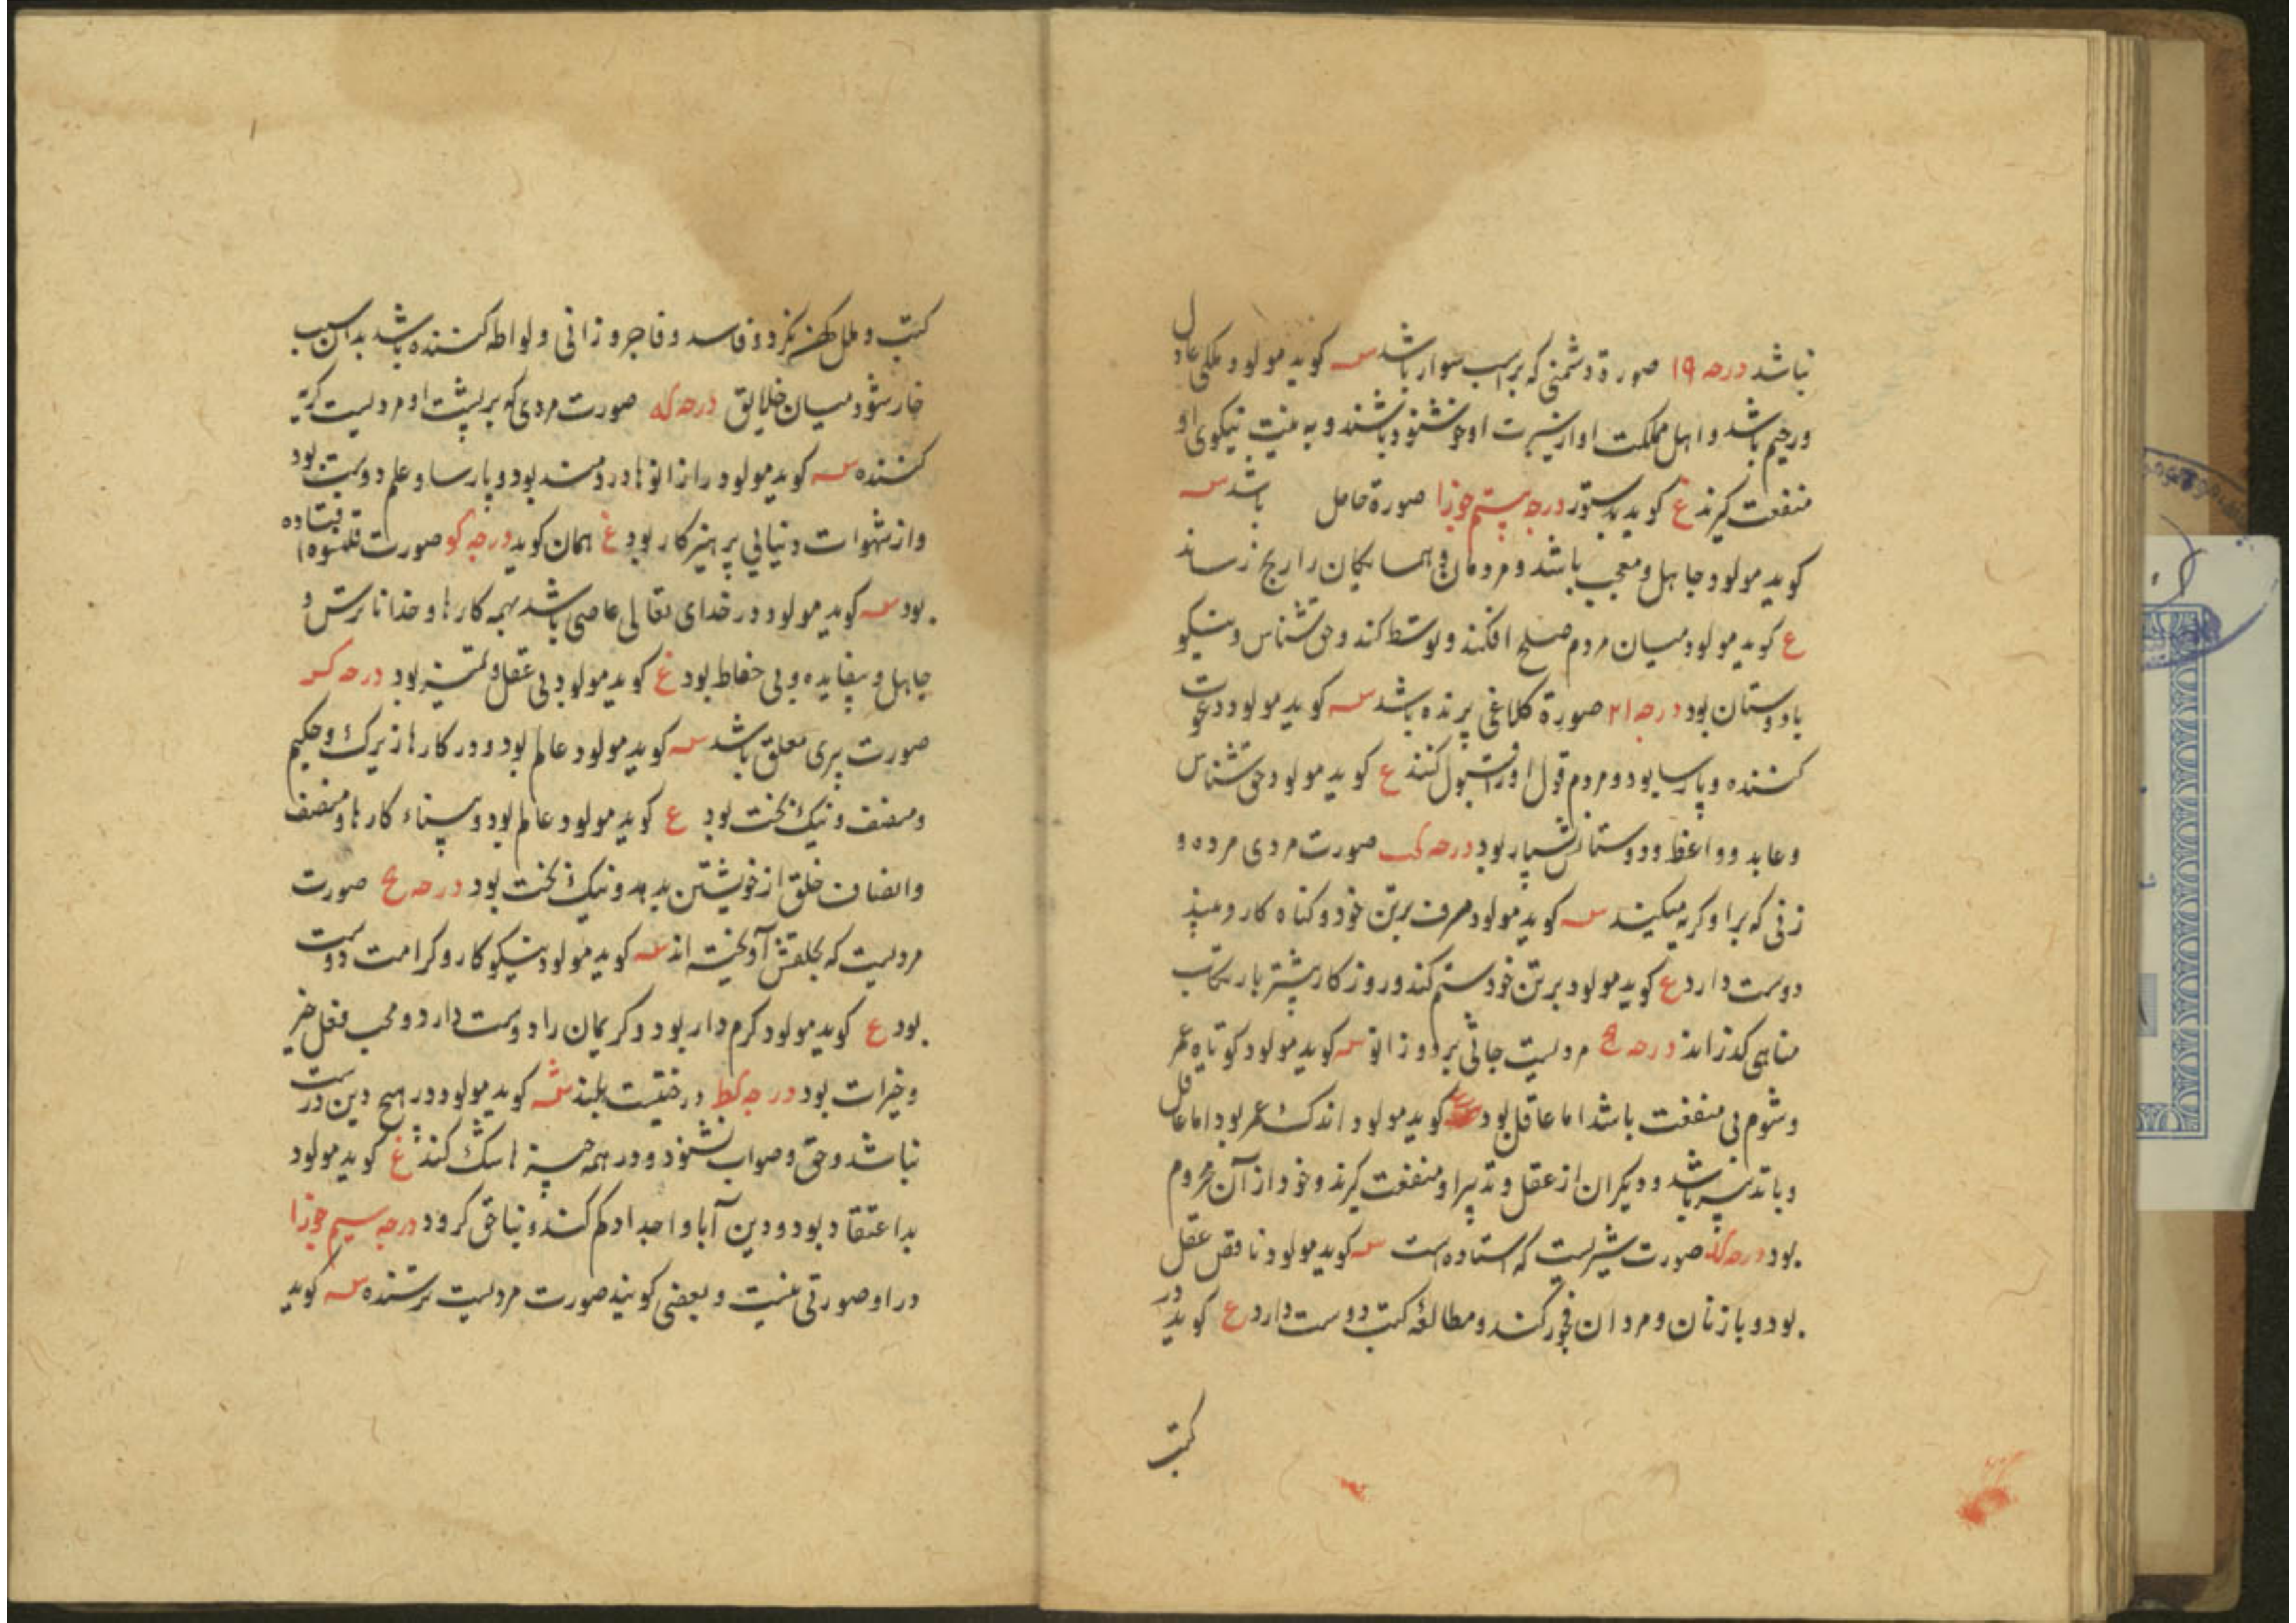 نباشد درجه ۱۹ صورة دشمنی که بر اسب سوار باشد س کوید مولود ملکی عادل
و رحیم باشد و اهل مملکت او از سیرت او خوشنود باشند و به نیکوی او
منفعت کیرند ع کوید بدستور درجه بیستم جوزا صورة حامل باشد س
کوید مولود جاهل و معجب باشد و مردمان و همسایکان را رنج رساند
ع کوید مولود میان مردم صلح افکند و توسط کند و حق شناس و نیکو
با دوستان بود درجه ۲۱ صورة کلاغی پرنده باشد س کوید مولود دعوت
کننده و پارسا بود و مردم قول او را قبول کنند ع کوید مولود حق شناس
و عابد و واعظ و دوستانش بسیار بود درجه کب صورت مردی مرده و
زنی که بر او کریه میکند س کوید مولود مسرف بر تن خود و کناه کار و
دوست دارد ع کوید مولود بر تن خود ستم کند و روزکار بیشتر بارتکاب
مناهی کذراند درجه کج مردیست جاثی بر دو زانو س کوید مولود کوتاه عمر
و شوم بی منفعت باشد اما عاقل بود ع کوید مولود اندک عمر بود اما عاقل
و با تدبیر باشد و دیکران از عقل و تدبیر او منفعت کیرند و خود از آن محروم
بود درجه کد صورت شیریست که استاده است س کوید مولود ناقص عقل
بود و با زنان و مردان فجور کند و مطالعهٔ کتب دوست دارد ع کوید در
کتب
کتب و ملل نکرد و فاسد و فاجر و زانی و لواطه کننده باشد بدان سبب
خار شود میان خلایق درجه که صورت مردی که بر پشت او مردیست کریه
کننده س کوید مولود را زانوها دردمند بود و پارسا و علم دوست بود
و از شهوات دنیائی پرهیزکار بود ع همان کوید درجه کو صورت قلنسوه افتاده
بود س کوید مولود در خدای تعالی عاصی باشد بهمه کارها و خداناترس و
جاهل و بیفایده و بی حفاظ بود ع کوید مولود بی عقل و تمیز بود درجه کز
صورت پری معلق باشد س کوید مولود عالم بود و در کارها زیرک و حکیم
و منصف و نیک بخت بود ع کوید مولود عالم بود و بیناء کارها و منصف
و انصاف خلق از خویشتن بدهد و نیک بخت بود درجه کح صورت
مردیست که بحلقش آویخته اند س کوید مولود نیکوکار و کرامت دوست
بود ع کوید مولود کرم دار بود و کریمان را دوست دارد و محب فعل خیر
و خیرات بود درجه کط درختیست بلند س کوید مولود در هیچ دین درست
نباشد و حق و صواب نشنود و در همه چیزها شک کند ع کوید مولود
بد اعتقاد بود و دین آبا و اجداد کم کند و بناحق کرود درجه سیم جوزا
در او صورتی نیست و بعضی کویند صورت مردیست ترسنده س کوید